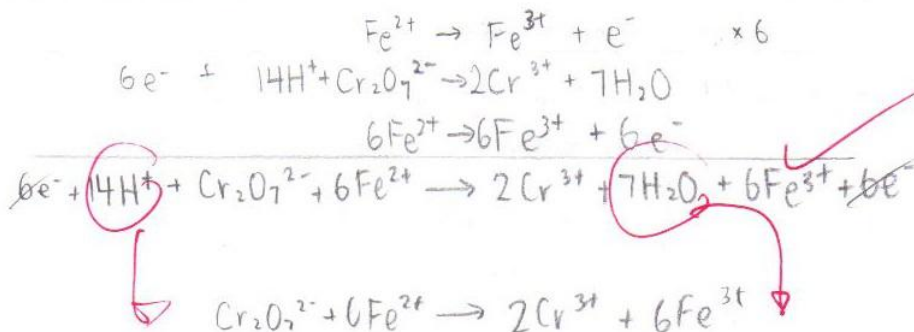 Fe²⁺ → Fe³⁺ + e⁻ × 6
6e⁻ + 14H⁺ + Cr₂O₇²⁻ → 2Cr³⁺ + 7H₂O
6Fe²⁺ → 6Fe³⁺ + 6e⁻
6e⁻ + 14H⁺ + Cr₂O₇²⁻ + 6Fe²⁺ → 2Cr³⁺ + 7H₂O + 6Fe³⁺ + 6e⁻
Cr₂O₇²⁻ + 6Fe²⁺ → 2Cr³⁺ + 6Fe³⁺